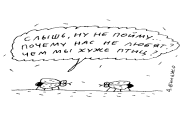 СЛЫШЬ, НУ НЕ ПОЙМУ...
ПОЧЕМУ НАС НЕ ЛЮБЯТ?
ЧЕМ МЫ ХУЖЕ ПТИЦ?